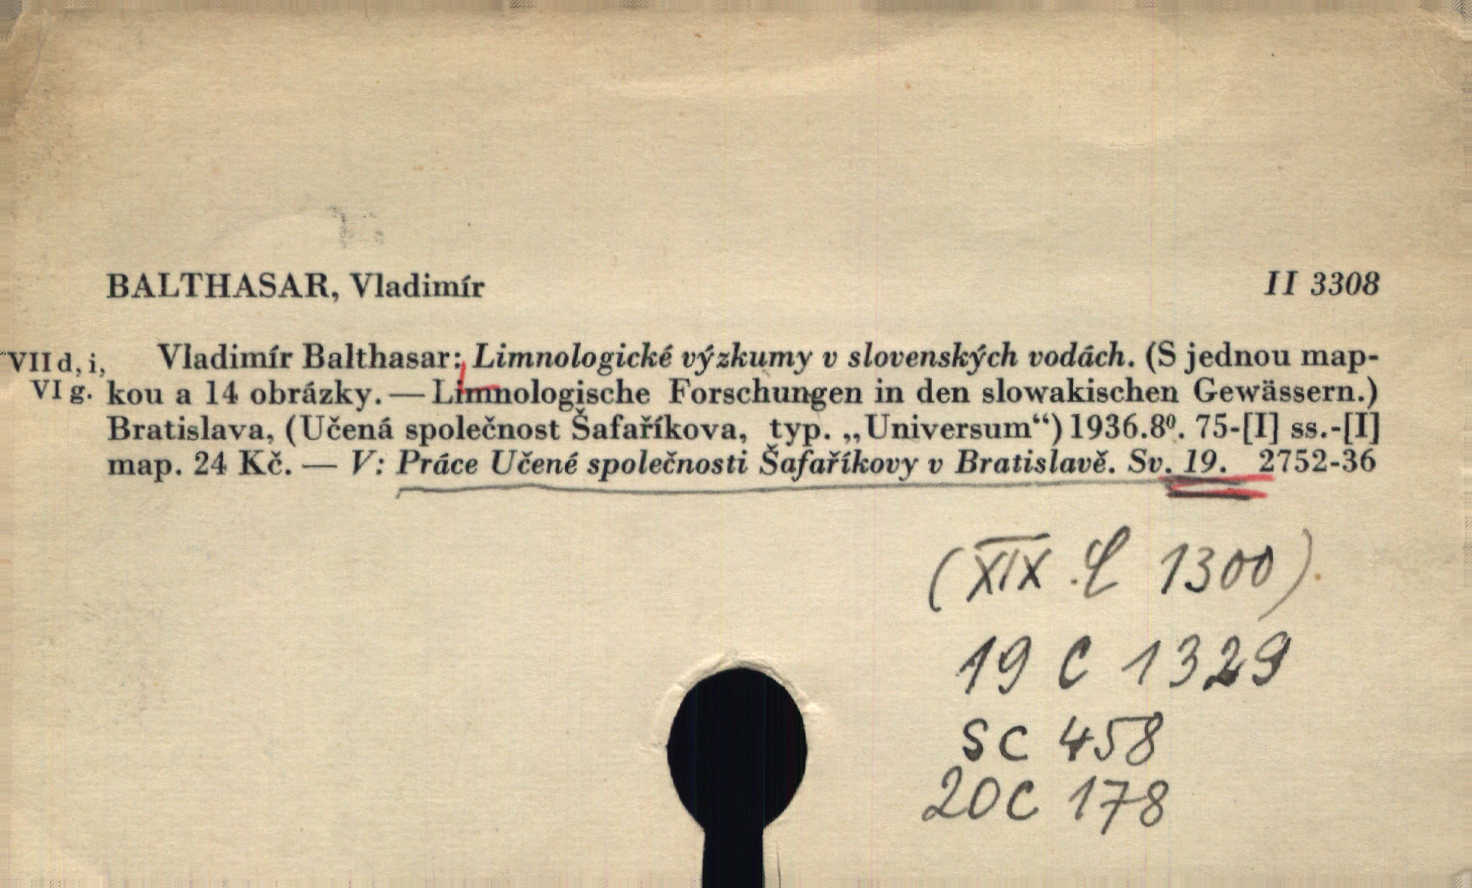 BALTHASAR, Vladimír II 3308
VII d, i, Vladimír Balthasar: Limnologické výzkumy v slovenských vodách. (S jednou map-
VI g. kou a 14 obrázky. — Limnologische Forschungen in den slowakischen Gewässern.)
Bratislava, (Učená společnost Šafaříkova, typ. „Universum“) 1936.8⁰. 75-[I] ss.-[I]
map. 24 Kč. — V: Práce Učené společnosti Šafaříkovy v Bratislavě. Sv. 19. 2752-36
(XIX. C 1300).
19 C 1329
SC 458
20C 178